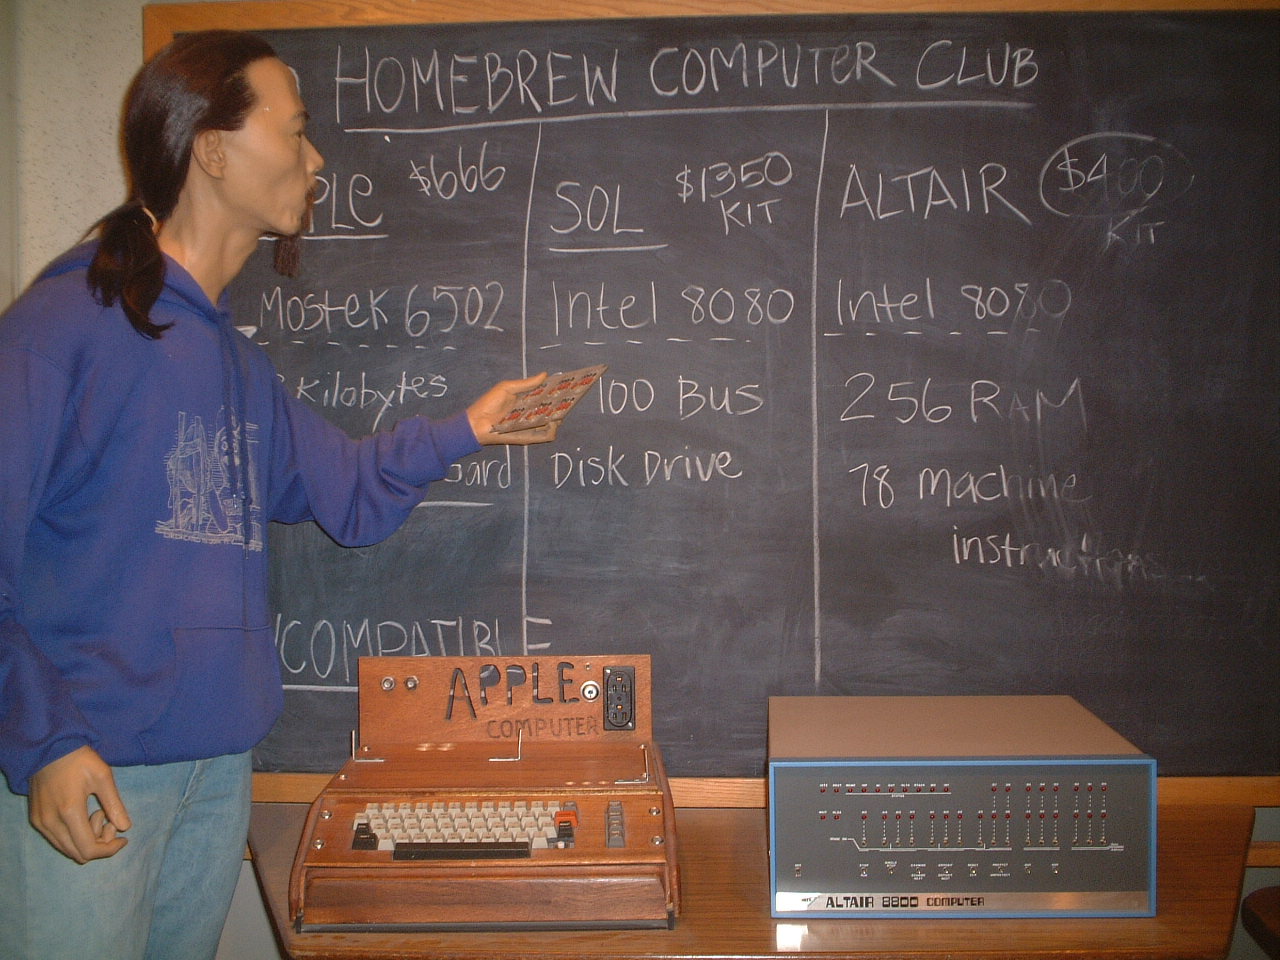 HOMEBREW COMPUTER CLUB
PLE $666
Mostek 6502
Kilobytes
oard
COMPATIBLE
SOL $1350
KIT
Intel 8080
100 Bus
Disk Drive
ALTAIR $400
KIT
Intel 8080
256 RAM
78 Machine
instructions
APPLE
COMPUTER
ALTAIR 8800 COMPUTER